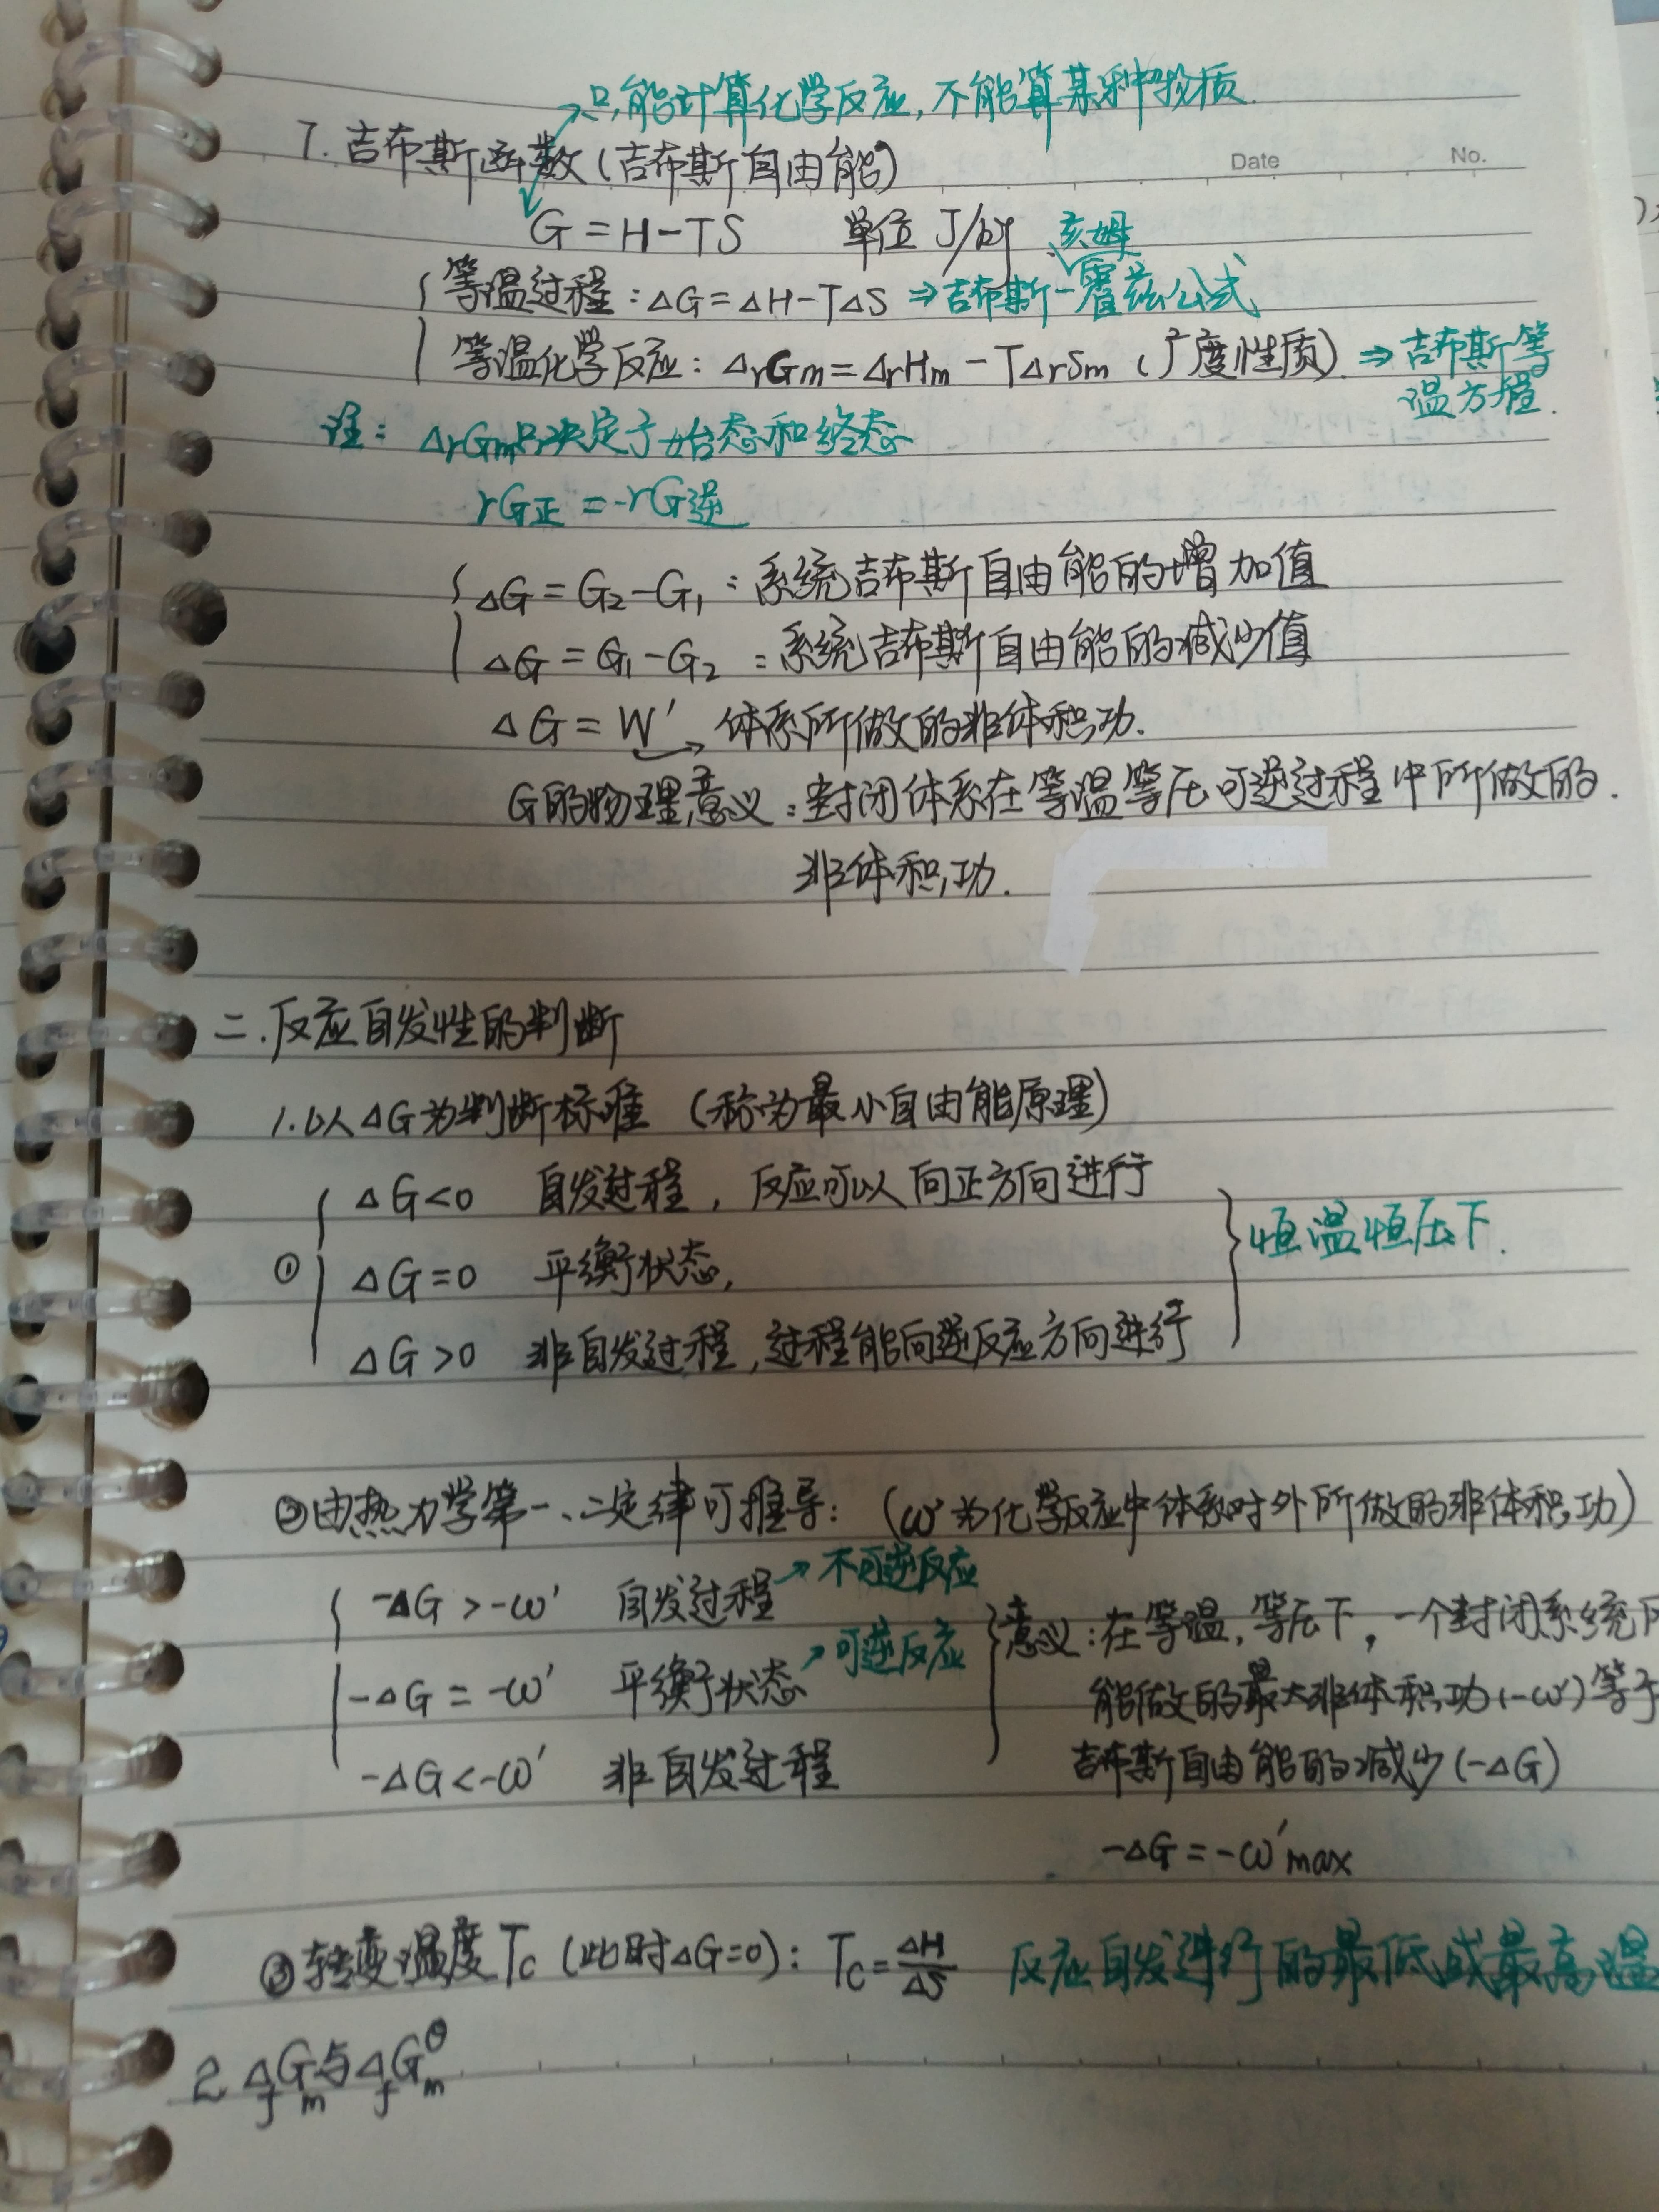 只能计算化学反应,不能算某种物质.
7.吉布斯函数(吉布斯自由能)
Date No.
G=H-TS 单位 J/kJ 亥姆
等温过程:ΔG=ΔH-TΔS ⇒吉布斯-霍兹公式
等温化学反应:ΔrGm=ΔrHm-TΔrSm(广度性质).⇒吉布斯等
温方程.
注: ΔrGm只决定于始态和终态
rG正=-rG逆
ΔG=G2-G1:系统吉布斯自由能的增加值
ΔG=G1-G2:系统吉布斯自由能的减少值
ΔG=W′→体系所做的非体积功.
G的物理意义:封闭体系在等温等压可逆过程中所做的.
非体积功.
二.反应自发性的判断
1.以ΔG为判断标准(称为最小自由能原理)
ΔG<0 自发过程,反应可以向正方向进行
① ΔG=0 平衡状态, 恒温恒压下.
ΔG>0 非自发过程,过程能向逆反应方向进行
②由热力学第一、二定律可推导:(ω′为化学反应中体系对外所做的非体积功)
-ΔG>-ω′ 自发过程→不可逆反应
意义:在等温,等压下,一个封闭系统所
-ΔG=-ω′ 平衡状态→可逆反应
能做的最大非体积功(-ω′)等于
-ΔG<-ω′ 非自发过程
吉布斯自由能的减少(-ΔG)
-ΔG=-ω′max
③转变温度Tc(此时ΔG=0):Tc=ΔH/ΔS 反应自发进行的最低或最高温
2.ΔfGm与ΔfGm^θ